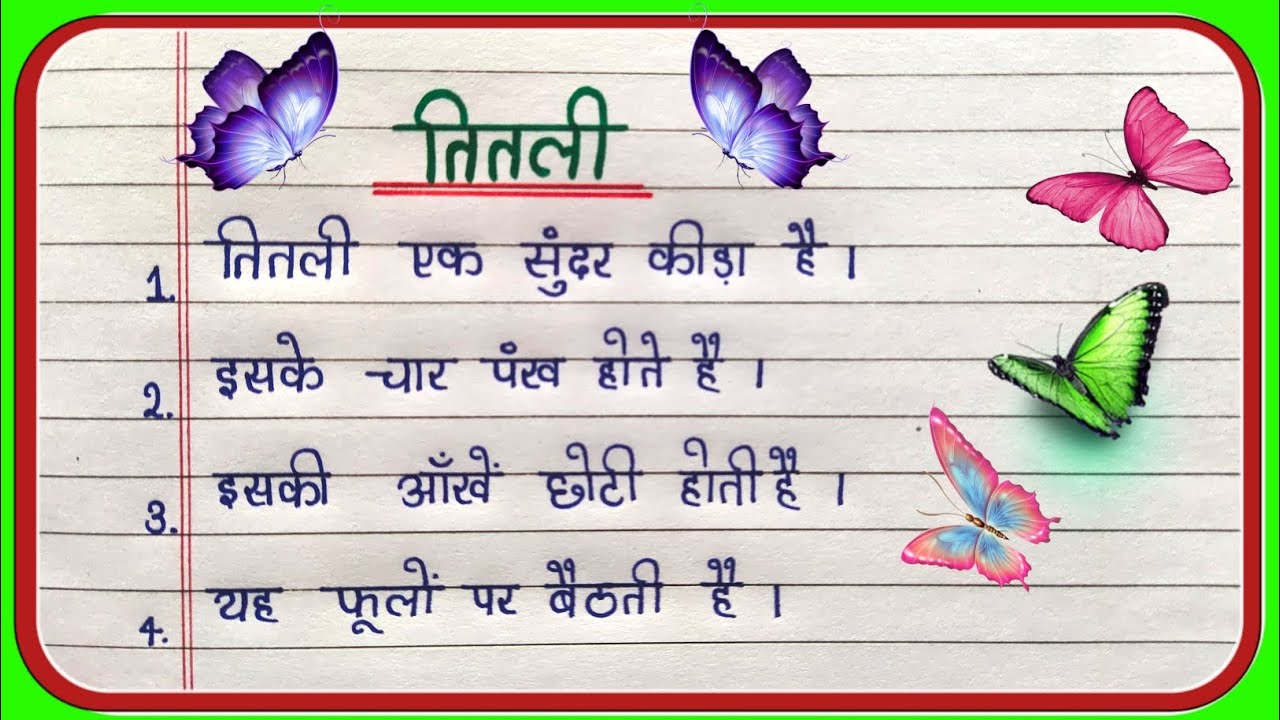 तितली
1. तितली एक सुंदर कीड़ा है।
2. इसके चार पंख होते है।
3. इसकी आँखें छोटी होती है।
4. यह फूलों पर बैठती है।